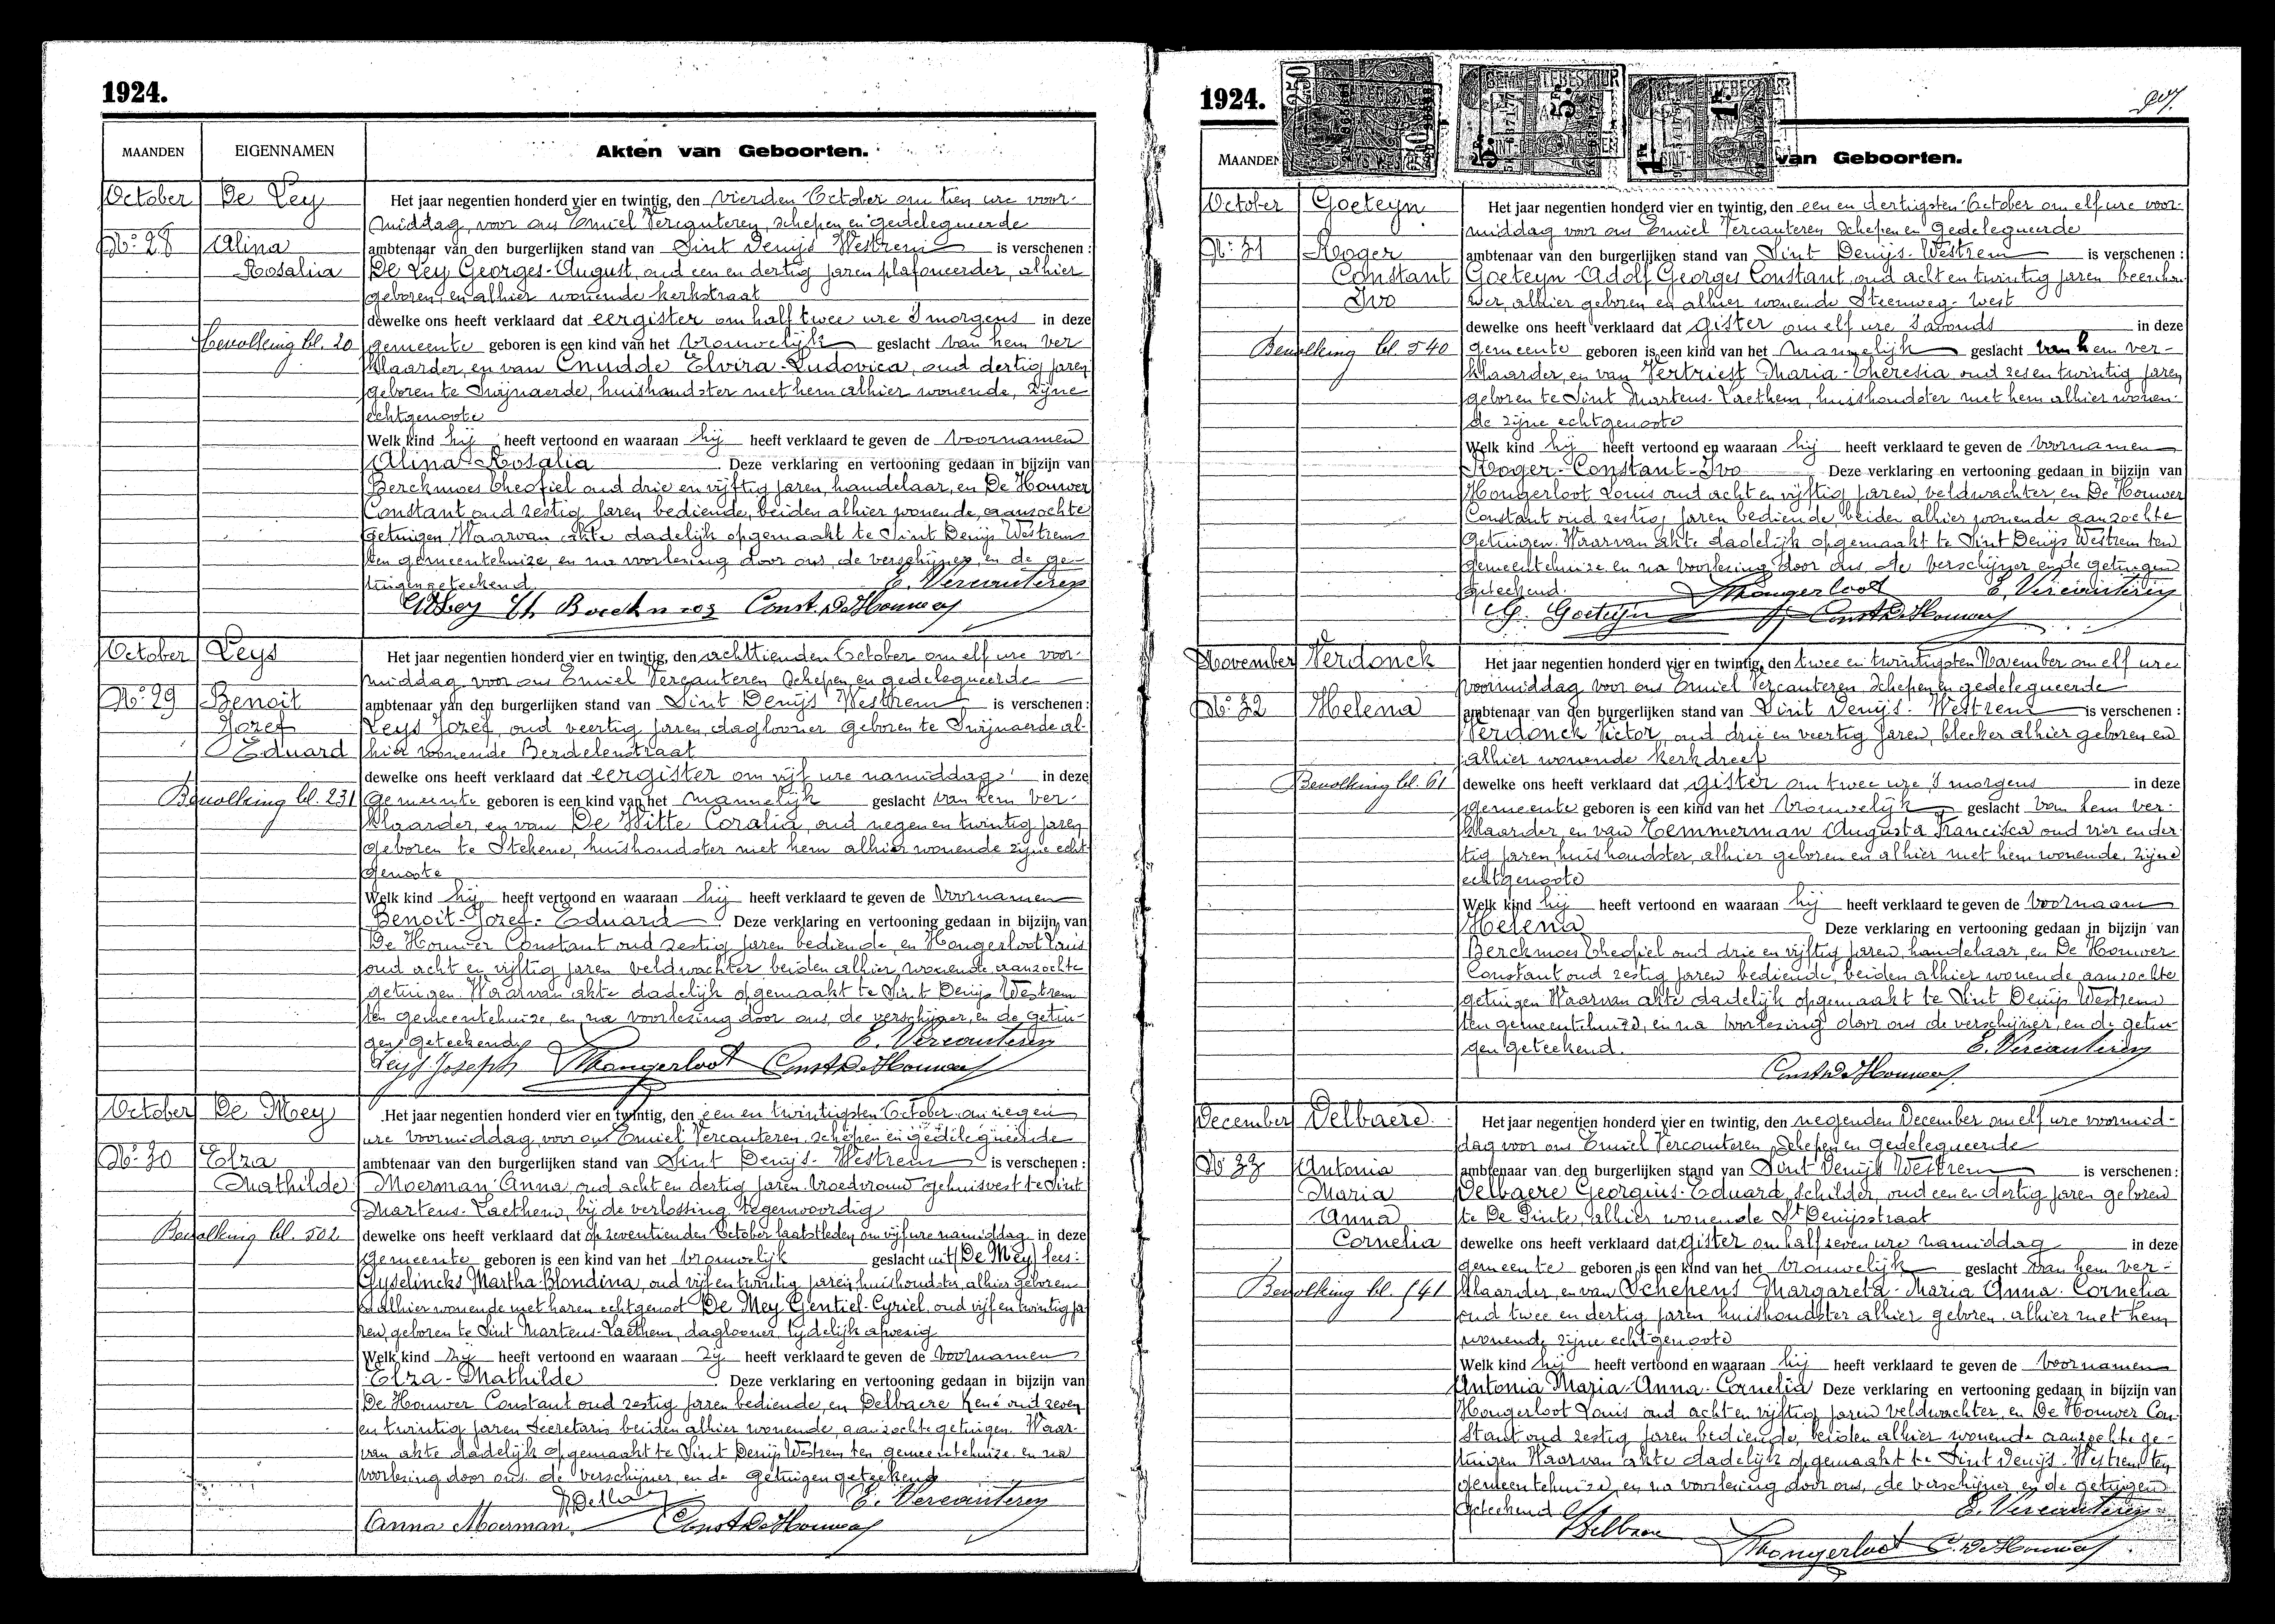 1924.
MAANDEN
EIGENNAMEN
Akten van Geboorten.
October
De Ley
Het jaar negentien honderd vier en twintig, den vierden October om tien ure voor-
middag, voor ons Emiel Vercauteren, schepen en gedelegueerde
No. 28
Alina
ambtenaar van den burgerlijken stand van Sint Denijs Westrem is verschenen :
Rosalia
De Ley Georges-August, oud een en dertig jaren plafoneerder, alhier
geboren, en alhier wonende Kerkstraat
dewelke ons heeft verklaard dat eergister om half twee ure 's morgens in deze
Bevolking bl. 20
gemeente geboren is een kind van het vrouwelijk geslacht van hem ver
klaarder, en van Cnudde Elvira-Ludovica, oud dertig jaren
geboren te Swijnaerde, huishoudster met hem alhier wonende, zijne
echtgenoote
Welk kind hij heeft vertoond en waaraan hij heeft verklaard te geven de voornamen
Alina-Rosalia Deze verklaring en vertooning gedaan in bijzijn van
Berckmoes Theofiel oud drie en vijftig jaren, handelaar, en De Houwer
Constant oud zestig jaren bediende, beiden alhier wonende, aanzochte
getuigen. Waarvan akte dadelijk opgemaakt te Sint Denijs Westrem
ten gemeentehuize, en na voorlezing door ons, de verschijner, en de ge-
tuigen geteekend.
E. Vercauteren
Th Berckmoes Const. De Houwer
October
Leys
Het jaar negentien honderd vier en twintig, den achttienden October om elf ure voor-
middag voor ons Emiel Vercauteren Schepen en gedelegueerde
No. 29
Benoit
ambtenaar van den burgerlijken stand van Sint Denijs Westrem is verschenen :
Jozef
Leys Jozef, oud veertig jaren, daglooner geboren te Swijnaerde al-
Eduard
hier wonende Berdelenstraat
dewelke ons heeft verklaard dat eergister om vijf ure namiddag in deze
Bevolking bl. 231
gemeente geboren is een kind van het mannelijk geslacht van hem ver-
klaarder, en van De Witte Coralia, oud negen en twintig jaren
geboren te Stekene, huishoudster met hem alhier wonende zijne echt
genoote
Welk kind hij heeft vertoond en waaraan hij heeft verklaard te geven de voornamen
Benoit-Jozef-Eduard. Deze verklaring en vertooning gedaan in bijzijn van
De Houwer Constant oud zestig jaren bediende, en Hongerloot Louis
oud acht en vijftig jaren veldwachter beiden alhier, wonende aanzochte
getuigen. Waarvan akte dadelijk opgemaakt te Sint Denijs Westrem
ten gemeentehuize, en na voorlezing door ons, de verschijner, en de getui-
gen geteekend
E. Vercauteren
Leys Joseph LHongerloot Const De Houwer
October
De Mey
Het jaar negentien honderd vier en twintig, den een en twintigsten October om negen
ure voormiddag, voor ons Emiel Vercauteren, schepen en gedelegueerde
No. 30
Elza
ambtenaar van den burgerlijken stand van Sint Denijs-Westrem is verschenen :
Mathilde
Moerman Anna, oud acht en dertig jaren vroedvrouw gehuisvest te Sint
Martens-Laethem, bij de verlossing tegenwoordig
Bevolking bl. 502
dewelke ons heeft verklaard dat op zeventienden October laatstleden om vijf ure namiddag in deze
gemeente geboren is een kind van het vrouwelijk geslacht uit (De Mey lees:
Gyselincks Martha-Blondina, oud vijf en twintig jaren, huishoudster, alhier geboren
en alhier wonende met haren echtgenoot De Mey Gentiel-Cyriel, oud vijf en twintig ja
ren, geboren te Sint Martens-Laethem, daglooner, tijdelijk afwezig
Welk kind zij heeft vertoond en waaraan zij heeft verklaard te geven de voornamen
Elza-Mathilde Deze verklaring en vertooning gedaan in bijzijn van
De Houwer Constant oud zestig jaren bediende, en Delbaere René oud zeven
en twintig jaren Secretaris beiden alhier wonende, aanzochte getuigen. Waar-
van akte dadelijk opgemaakt te Sint Denijs Westrem ten gemeentehuize en na
voorlezing door ons, de verschijner, en de getuigen geteekend
E. Vercauteren
Anna Moerman. Const De Houwer
1924.
MAANDEN
van Geboorten.
October
Goeteyn
Het jaar negentien honderd vier en twintig, den een en dertigsten October om elf ure voor-
middag voor ons Emiel Vercauteren Schepen en Gedelegueerde
No. 31
Roger
ambtenaar van den burgerlijken stand van Sint Denijs-Westrem is verschenen :
Constant
Goeteyn-Adolf Georges Constant, oud acht en twintig jaren beenhou-
Ivo
wer, alhier geboren en alhier wonende Steenweg-West
dewelke ons heeft verklaard dat gister om elf ure 's avonds in deze
Bevolking bl. 540
gemeente geboren is een kind van het mannelijk geslacht van hem ver-
klaarder, en van Vertriest Maria-Theresia oud zes en twintig jaren
geboren te Sint Martens-Laethem, huishoudster met hem alhier wonen-
de zijne echtgenoote
Welk kind hij heeft vertoond en waaraan hij heeft verklaard te geven de voornamen
Roger-Constant-Ivo Deze verklaring en vertooning gedaan in bijzijn van
Hongerloot Louis oud acht en vijftig jaren, veldwachter, en De Houwer
Constant oud zestig jaren bediende, beiden alhier wonende aanzochte
getuigen. Waarvan akte dadelijk opgemaakt te Sint Denijs Westrem ten
gemeentehuize en na voorlezing door ons, de verschijner en de getuigen
geteekend.
LHongerloot E. Vercauteren
G. Goeteyn Const De Houwer
November
Verdonck
Het jaar negentien honderd vier en twintig, den twee en twintigsten November om elf ure
voormiddag voor ons Emiel Vercauteren Schepen en gedelegueerde
No. 32
Helena
ambtenaar van den burgerlijken stand van Sint Denijs-Westrem is verschenen :
Verdonck Victor, oud drie en veertig jaren, bleeker alhier geboren en
alhier wonende Kerkdreef
Bevolking bl. 61
dewelke ons heeft verklaard dat gister om twee ure 's morgens in deze
gemeente geboren is een kind van het vrouwelijk geslacht van hem ver-
klaarder, en van Temmerman Augusta Francisca oud vier en der-
tig jaren, huishoudster, alhier geboren en alhier met hem wonende, zijne
echtgenoote
Welk kind hij heeft vertoond en waaraan hij heeft verklaard te geven de voornaam
Helena Deze verklaring en vertooning gedaan in bijzijn van
Berckmoes Theofiel oud drie en vijftig jaren, handelaar, en De Houwer
Constant oud zestig jaren bediende, beiden alhier wonende aanzochte
getuigen Waarvan akte dadelijk opgemaakt te Sint Denijs Westrem
ten gemeentehuize, en na voorlezing door ons de verschijner, en de getui-
gen geteekend.
E. Vercauteren
Const De Houwer
December
Delbaere
Het jaar negentien honderd vier en twintig, den negenden December om elf ure voormid-
dag voor ons Emiel Vercauteren Schepen en gedelegueerde
No 33
Antonia
ambtenaar van den burgerlijken stand van Sint Denijs Westrem is verschenen :
Maria
Delbaere Georgius-Eduard, Schilder, oud een en dertig jaren geboren
Anna
te De Pinte, alhier wonende St Denijsstraat
Cornelia
dewelke ons heeft verklaard dat gister om half zeven ure namiddag in deze
gemeente geboren is een kind van het vrouwelijk geslacht van hem ver-
Bevolking bl. 541
klaarder, en van Schepens Margareta-Maria Anna-Cornelia
oud twee en dertig jaren huishoudster alhier geboren, alhier met hem
wonende zijne echtgenoote
Welk kind hij heeft vertoond en waaraan hij heeft verklaard te geven de voornamen
Antonia Maria-Anna-Cornelia Deze verklaring en vertooning gedaan in bijzijn van
Hongerloot Louis oud acht en vijftig jaren veldwachter, en De Houwer Con-
stant oud zestig jaren bediende, beiden alhier wonende aanzochte ge-
tuigen Waarvan akte dadelijk opgemaakt te Sint Denijs-Westrem ten
gemeentehuize, en na voorlezing door ons, de verschijner en de getuigen
geteekend
E. Vercauteren
Delbaere
LHongerloot C. De Houwer